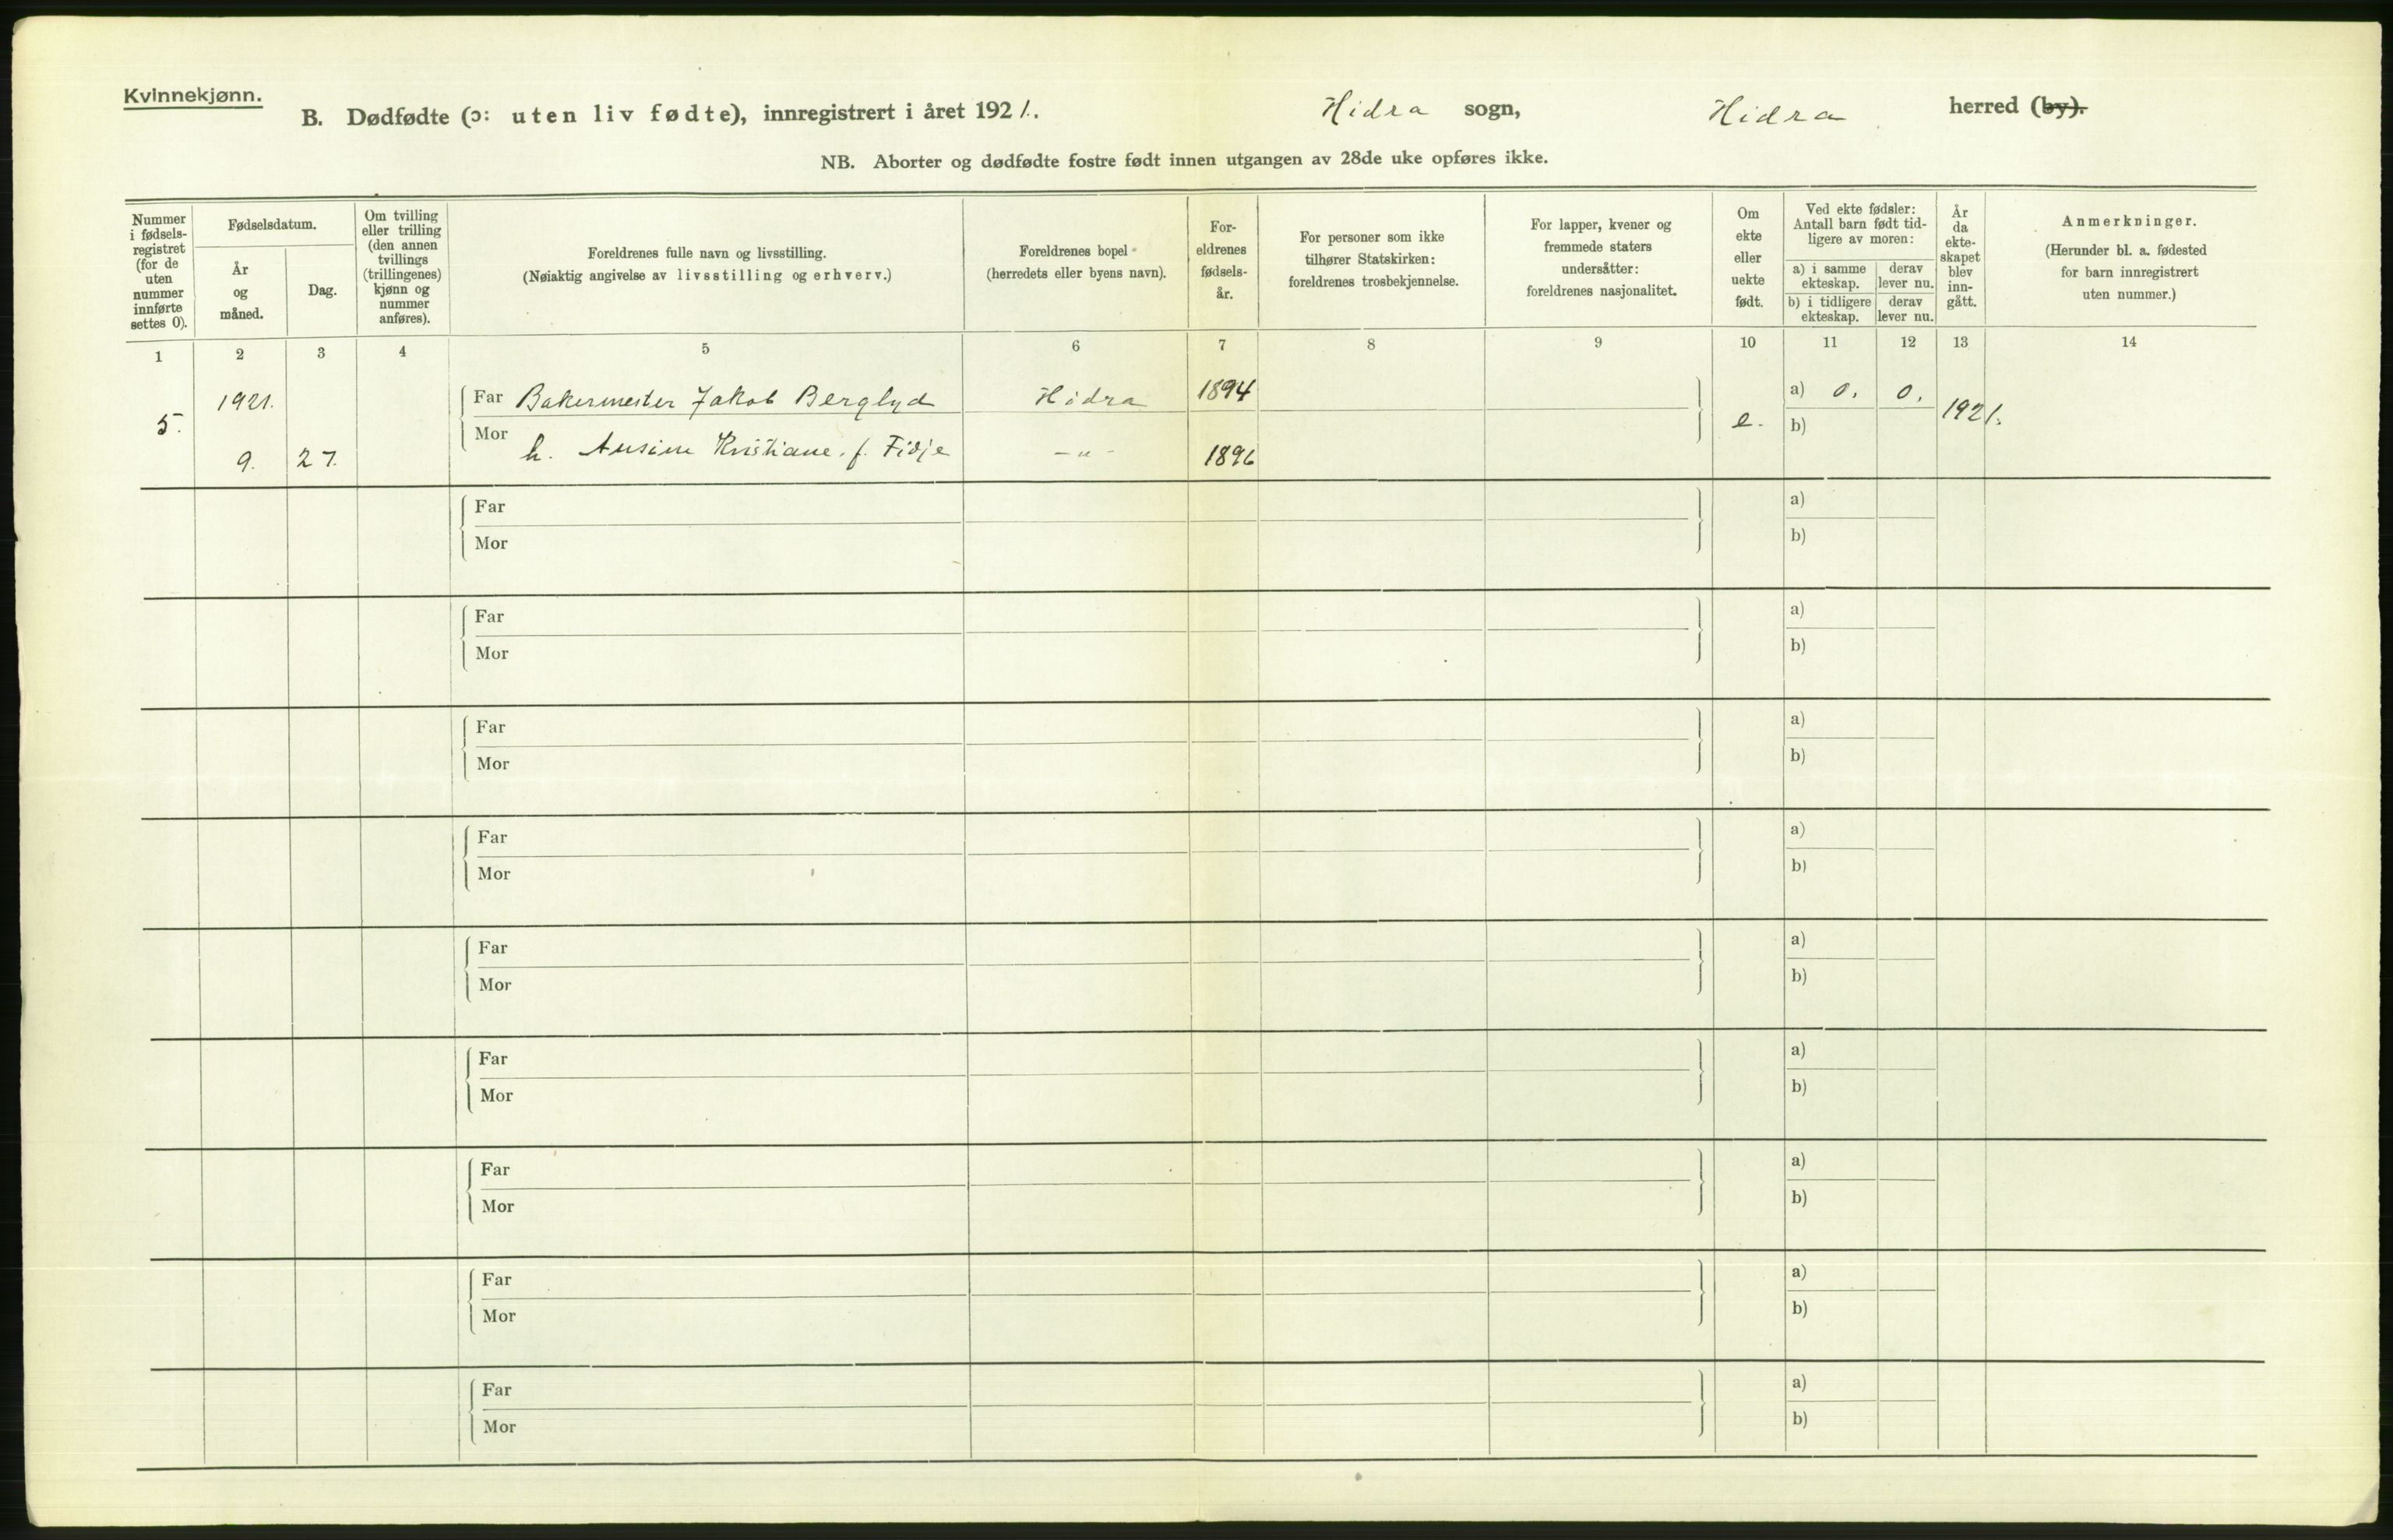 Kvinnekjønn.
B. Dødfødte (ɔ: uten liv fødte), innregistrert i året 1921. Hidra sogn, Hidra herred (by).
NB. Aborter og dødfødte fostre født innen utgangen av 28de uke opføres ikke.
Nummer i fødsels-registret (for de uten nummer innførte settes 0).
Fødselsdatum.
År og måned.
Dag.
Om tvilling eller trilling (den annen tvillings (trillingenes) kjønn og nummer anføres).
Foreldrenes fulle navn og livsstilling.
(Nøiaktig angivelse av livsstilling og erhverv.)
Foreldrenes bopel
(herredets eller byens navn).
For-eldrenes fødsels-år.
For personer som ikke tilhører Statskirken: foreldrenes trosbekjennelse.
For lapper, kvener og fremmede staters undersåtter: foreldrenes nasjonalitet.
Om ekte eller uekte født.
Ved ekte fødsler: Antall barn født tid-ligere av moren:
a) i samme ekteskap.
derav lever nu.
b) i tidligere ekteskap.
derav lever nu.
År da ekte-skapet blev inn-gått.
Anmerkninger.
(Herunder bl. a. fødested for barn innregistrert uten nummer.)
1 2 3 4 5 6 7 8 9 10 11 12 13 14
1921. Far Bakermester Jakob Berglyd Hidra 1894 a) 0. 0.
5. Mor e. b) 1921.
9. 27. h. Kristiane. f. Fidje -"- 1896
Far a)
Mor b)
Far a)
Mor b)
Far a)
Mor b)
Far a)
Mor b)
Far a)
Mor b)
Far a)
Mor b)
Far a)
Mor b)
Far a)
Mor b)
Far a)
Mor b)